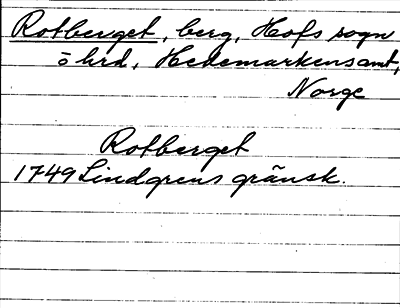 Rotberget, berg, Hofs sogn
ö hrd, Hedemarkens amt,
Norge
Rotberget
1749 Lindgrens gränsk.